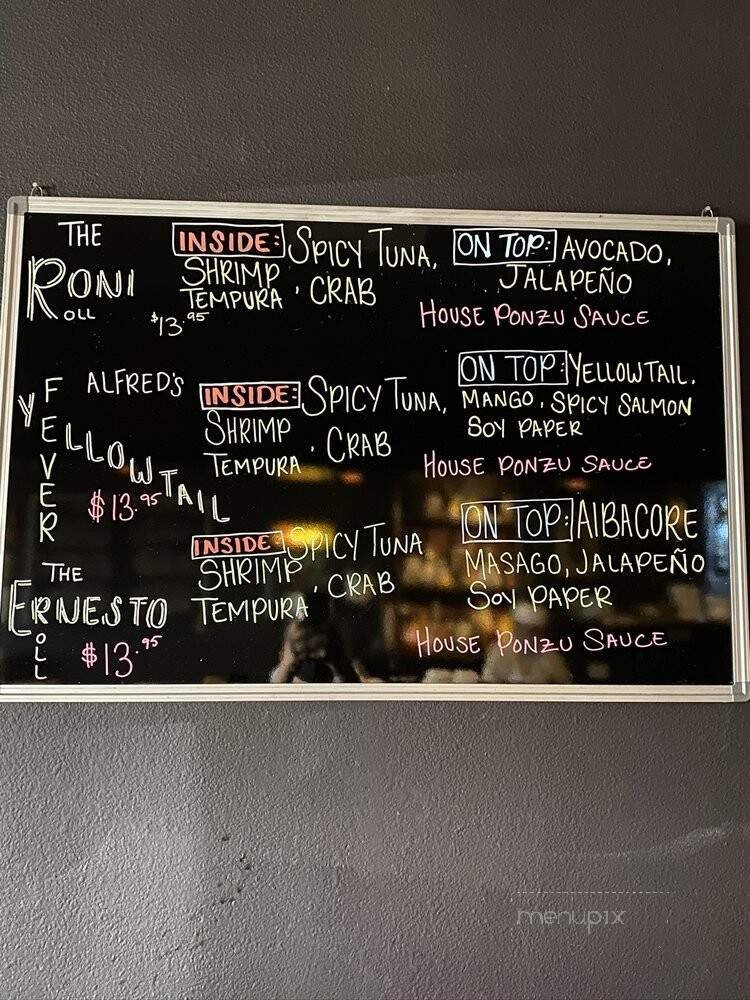 THE
RONI
ROLL
$13.95
INSIDE: SPICY TUNA,
SHRIMP
TEMPURA, CRAB
ON TOP: AVOCADO,
JALAPEÑO
HOUSE PONZU SAUCE
ALFRED'S
YELLOWTAIL
FEVER
$13.95
INSIDE: SPICY TUNA,
SHRIMP
TEMPURA, CRAB
ON TOP: YELLOWTAIL,
MANGO, SPICY SALMON
SOY PAPER
HOUSE PONZU SAUCE
THE
ERNESTO
ROLL
$13.95
INSIDE: SPICY TUNA
SHRIMP
TEMPURA, CRAB
ON TOP: AlBACORE
MASAGO, JALAPEÑO
SOY PAPER
HOUSE PONZU SAUCE
menupix